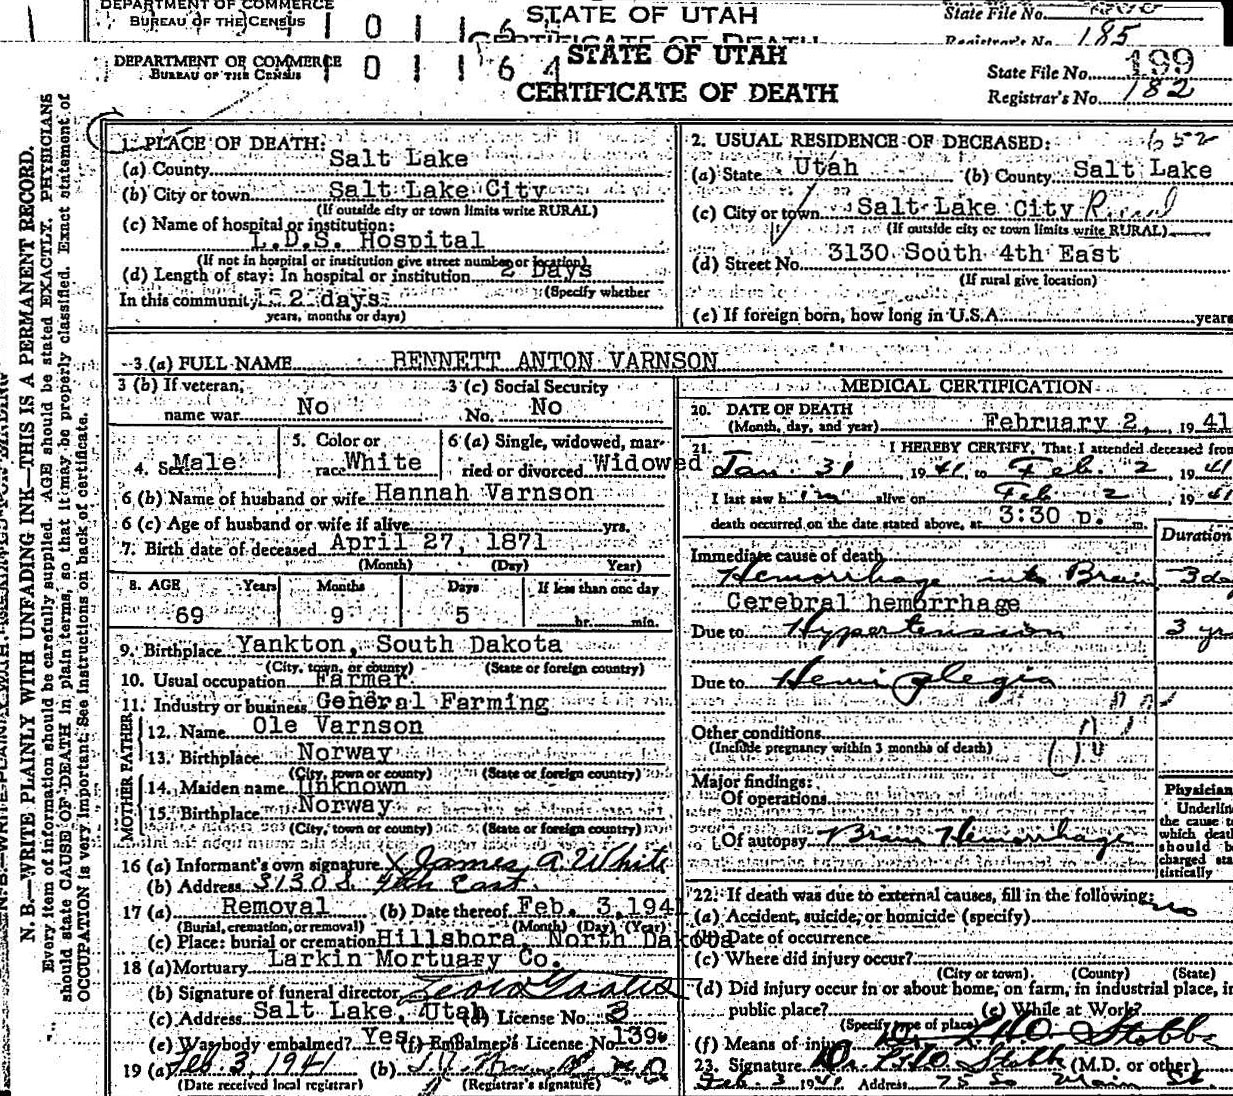 DEPARTMENT OF COMMERCE
BUREAU OF THE CENSUS
STATE OF UTAH
State File No.
CERTIFICATE OF DEATH
Registrar's No. 185
DEPARTMENT OF COMMERCE
BUREAU OF THE CENSUS
0 1 1 6 4
STATE OF UTAH
CERTIFICATE OF DEATH
State File No. 199
Registrar's No. 182
N. B.—WRITE PLAINLY WITH UNFADING INK—THIS IS A PERMANENT RECORD.
Every item of information should be carefully supplied. AGE should be stated EXACTLY. PHYSICIANS
should state CAUSE OF DEATH in plain terms, so that it may be properly classified. Exact statement of
OCCUPATION is very important. See instructions on back of certificate.
1. PLACE OF DEATH:
(a) County Salt Lake
(b) City or town Salt Lake City
(If outside city or town limits write RURAL)
(c) Name of hospital or institution:
L.D.S. Hospital
(If not in hospital or institution give street number or location)
(d) Length of stay: In hospital or institution 2 Days
(Specify whether
In this community 2 days
years, months or days)
2. USUAL RESIDENCE OF DECEASED: 652
(a) State Utah (b) County Salt Lake
(c) City or town Salt Lake City Rural
(If outside city or town limits write RURAL)
(d) Street No. 3130 South 4th East
(If rural give location)
(e) If foreign born, how long in U.S.A. years
3 (a) FULL NAME BENNETT ANTON VARNSON
3 (b) If veteran, name war No
3 (c) Social Security No. No
4. Sex Male
5. Color or race White
6 (a) Single, widowed, married or divorced Widowed
6 (b) Name of husband or wife Hannah Varnson
6 (c) Age of husband or wife if alive yrs.
7. Birth date of deceased April 27, 1871
(Month) (Day) Year)
8. AGE Years Months Days If less than one day
69 9 5 hr. min.
9. Birthplace Yankton, South Dakota
(City, town, or county) (State or foreign country)
10. Usual occupation Farmer
11. Industry or business General Farming
FATHER
12. Name Ole Varnson
13. Birthplace Norway
(City, town or county) (State or foreign country)
MOTHER
14. Maiden name Unknown
15. Birthplace Norway
(City, town or county) (State or foreign country)
16 (a) Informant's own signature X James A. White
(b) Address 3130 S. 4th East.
17 (a) Removal (b) Date thereof Feb. 3, 1941
(Burial, cremation, or removal) (Month) (Day) (Year)
(c) Place: burial or cremation Hillsboro, North Dakota
18 (a) Mortuary Larkin Mortuary Co.
(b) Signature of funeral director
(c) Address Salt Lake, Utah (d) License No. 3
(e) Was body embalmed? Yes (f) Embalmer's License No. 139
19 (a) Feb 3, 1941 (b)
(Date received local registrar) (Registrar's signature)
MEDICAL CERTIFICATION
20. DATE OF DEATH
(Month, day, and year) February 2, 1941
21. I HEREBY CERTIFY, That I attended deceased from
Jan. 31 1941 to Feb. 2 1941
I last saw him alive on Feb. 2 1941
death occurred on the date stated above, at 3:30 p. m.
Duration
Immediate cause of death
Hemorrhage into Brain 3 da
Cerebral hemorrhage
Due to Hypertension 3 yr
Due to Hemiplegia
Other conditions
(Include pregnancy within 3 months of death)
Major findings:
Of operations
Of autopsy Brain Hemorrhage
Physician
Underline
the cause to
which death
should be
charged sta
tistically
22. If death was due to external causes, fill in the following: no
(a) Accident, suicide, or homicide (specify)
(b) Date of occurrence
(c) Where did injury occur?
(City or town) (County) (State)
(d) Did injury occur in or about home, on farm, in industrial place, in
public place? (e) While at Work?
(Specify type of place)
(f) Means of injury
23. Signature (M.D. or other)
Feb. 3 1941 Address 75 So Main St.